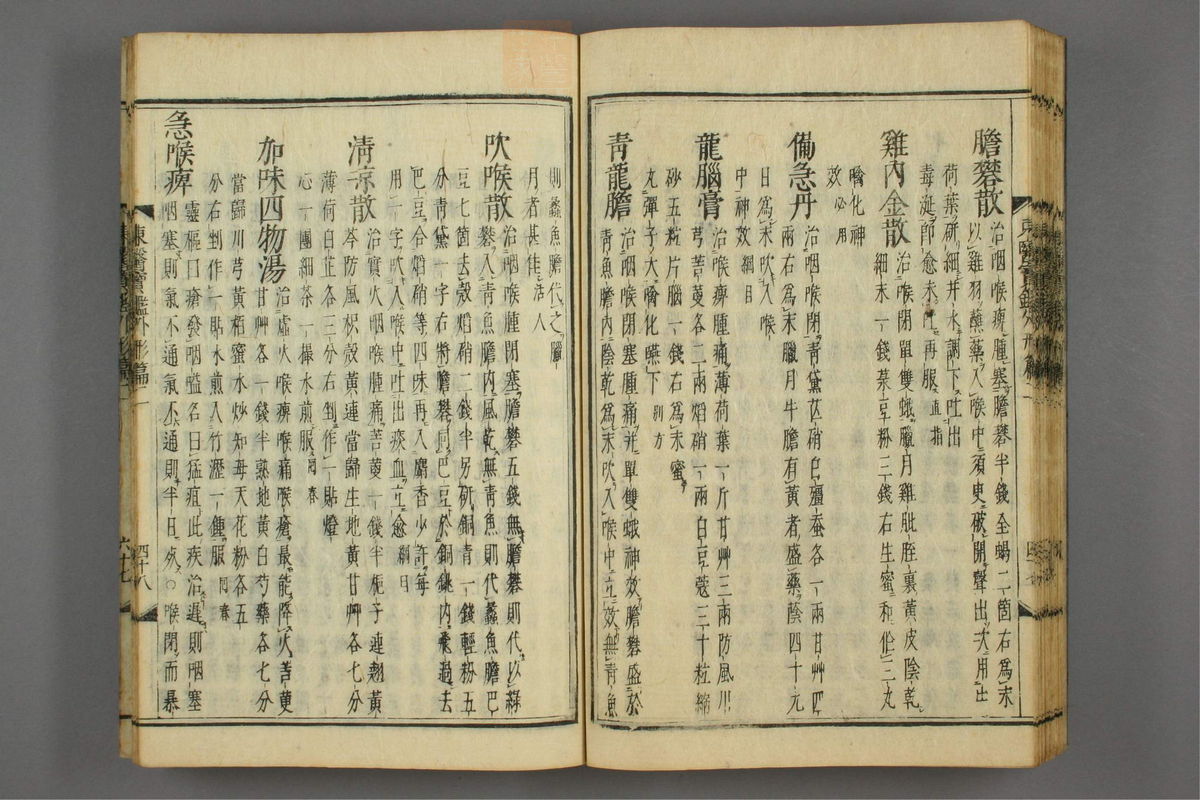 膽礬散治咽喉痺腫塞膽礬半錢全蝎二箇右爲末
以雞羽蘸藥入喉中須臾破開聲出次用生
荷葉硏井水調下吐出
毒涎卽愈未吐再服直指
雞內金散治喉閉單雙蛾臘月雞肶胵裏黃皮陰乾
細末一錢菉豆粉三錢右生蜜和作三丸
噙化神
效必用
備急丹治咽喉閉靑黛芒硝白殭蚕各一兩甘艸四
兩右爲末臘月牛膽有黃者盛藥陰四十九
日爲末吹入喉
中神效綱目
龍腦膏治喉痺腫痛薄荷葉一斤甘艸三兩防風川
芎䓀蔞各二兩焰硝一兩白豆蔲三十粒縮
砂五粒片腦一錢右爲末蜜
丸彈子大噙化嚥下別方
靑龍膽治咽喉閉塞腫痛幷單雙蛾神效膽礬盛於
靑魚膽內陰乾爲末吹入喉中立效無靑魚
則蠡魚膽代之臘
月者甚佳活人
吹喉散治咽喉腫閉塞膽礬五錢無膽礬則代以綠
礬入靑魚膽內風乾無靑魚則代蠡魚膽巴
豆七箇去殼焰硝二錢半另硏銅靑一錢輕粉五
分靑黛一字右將膽礬同巴豆於銅銚內飛過去
巴豆合焰硝等四味再入麝香少許每
用一字吹入喉中吐出痰血立愈綱目
淸凉散治實火咽喉腫痛苦䓀一錢半梔子連翹黃
芩防風枳殼黃連當歸生地黃甘艸各七分
薄荷白芷各三分右剉作一貼燈
心一團細茶一撮水煎服回春
加味四物湯治虛火喉痺喉痛喉瘡最能降火苦䓀
甘艸各一錢半熟地黃白芍藥各七分
當歸川芎黃栢蜜水炒知母天花粉各五
分右剉作一貼水煎入竹瀝一鍾服回春
急喉痺靈樞曰癰發咽嗌名曰猛疽此疾治遲則咽塞
咽塞則氣不通氣不通則半日死○喉閉而暴
東醫寶鑑外形篇二
四十八
東醫寶鑑外形篇二